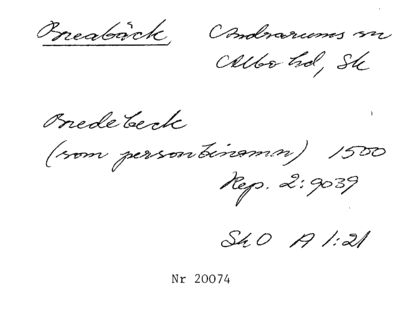 Bredabäck Andrarums sn
Albo hd, Sk
Bredebeck
(som personbinamn) 1500
Rep. 2:9039
SkO A 1:21
Nr 20074